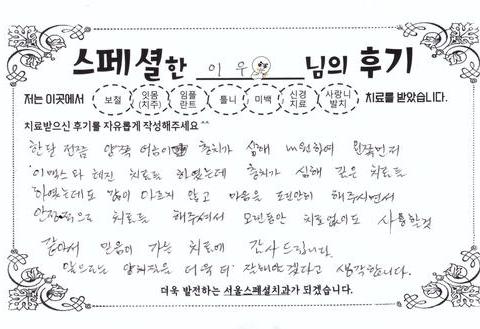 스페셜한 이우 님의 후기
저는 이곳에서 보철 잇몸(치주) 임플란트 틀니 미백 신경치료 사랑니발치 치료를 받았습니다.
치료받으신 후기를 자유롭게 작성해주세요^^
한달 전쯤 양쪽 어금니 충치가 심해 내원하여 왼쪽먼저
치료를 하였는데 충치가 심해 깊은 치료를
하였는데도 많이 아프지 않고 마음을 편안히 해주시면서
안정적으로 치료를 해주셔서 오랜동안 치료없이도 사용할것
같아서 믿음이 가는 치료에 감사드립니다.
앞으로는 양치질을 더욱 더 잘해야겠다고 생각합니다.
더욱 발전하는 서울스페셜치과가 되겠습니다.